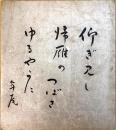 仰ぎ見し
帰雁のつばさ
ゆるやかに